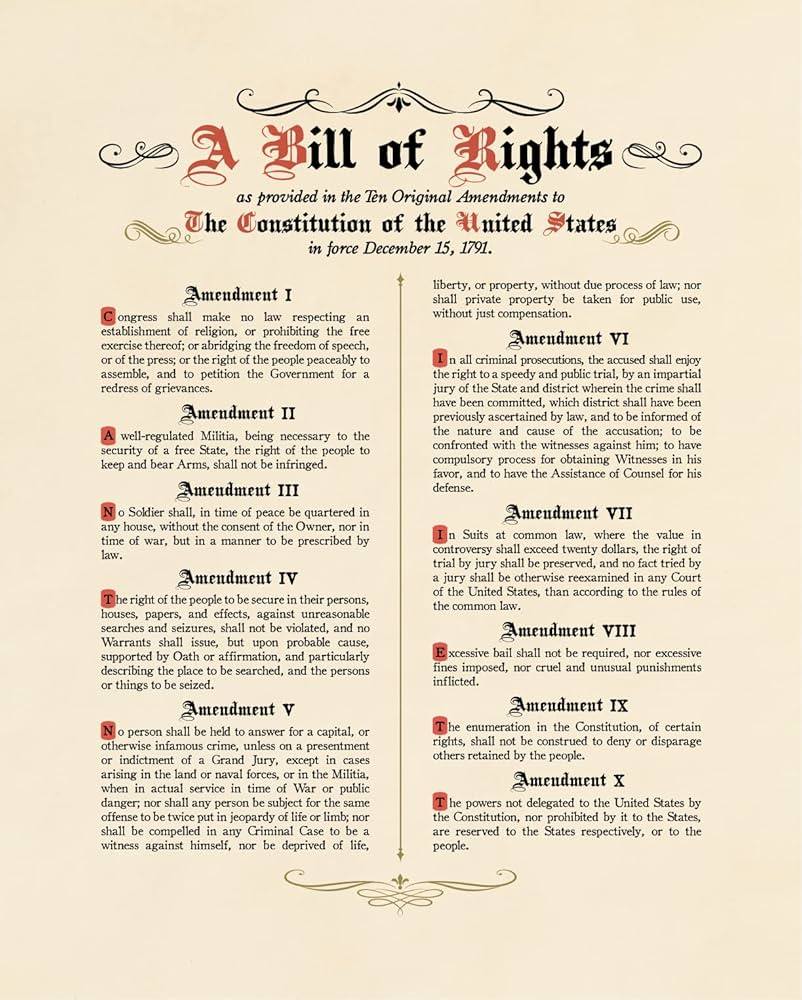 A Bill of Rights
as provided in the Ten Original Amendments to
The Constitution of the United States
in force December 15, 1791.
Amendment I
Congress shall make no law respecting an
establishment of religion, or prohibiting the free
exercise thereof; or abridging the freedom of speech,
or of the press; or the right of the people peaceably to
assemble, and to petition the Government for a
redress of grievances.
Amendment II
A well-regulated Militia, being necessary to the
security of a free State, the right of the people to
keep and bear Arms, shall not be infringed.
Amendment III
No Soldier shall, in time of peace be quartered in
any house, without the consent of the Owner, nor in
time of war, but in a manner to be prescribed by
law.
Amendment IV
The right of the people to be secure in their persons,
houses, papers, and effects, against unreasonable
searches and seizures, shall not be violated, and no
Warrants shall issue, but upon probable cause,
supported by Oath or affirmation, and particularly
describing the place to be searched, and the persons
or things to be seized.
Amendment V
No person shall be held to answer for a capital, or
otherwise infamous crime, unless on a presentment
or indictment of a Grand Jury, except in cases
arising in the land or naval forces, or in the Militia,
when in actual service in time of War or public
danger; nor shall any person be subject for the same
offense to be twice put in jeopardy of life or limb; nor
shall be compelled in any Criminal Case to be a
witness against himself, nor be deprived of life,
liberty, or property, without due process of law; nor
shall private property be taken for public use,
without just compensation.
Amendment VI
In all criminal prosecutions, the accused shall enjoy
the right to a speedy and public trial, by an impartial
jury of the State and district wherein the crime shall
have been committed, which district shall have been
previously ascertained by law, and to be informed of
the nature and cause of the accusation; to be
confronted with the witnesses against him; to have
compulsory process for obtaining Witnesses in his
favor, and to have the Assistance of Counsel for his
defense.
Amendment VII
In Suits at common law, where the value in
controversy shall exceed twenty dollars, the right of
trial by jury shall be preserved, and no fact tried by
a jury shall be otherwise reexamined in any Court
of the United States, than according to the rules of
the common law.
Amendment VIII
Excessive bail shall not be required, nor excessive
fines imposed, nor cruel and unusual punishments
inflicted.
Amendment IX
The enumeration in the Constitution, of certain
rights, shall not be construed to deny or disparage
others retained by the people.
Amendment X
The powers not delegated to the United States by
the Constitution, nor prohibited by it to the States,
are reserved to the States respectively, or to the
people.